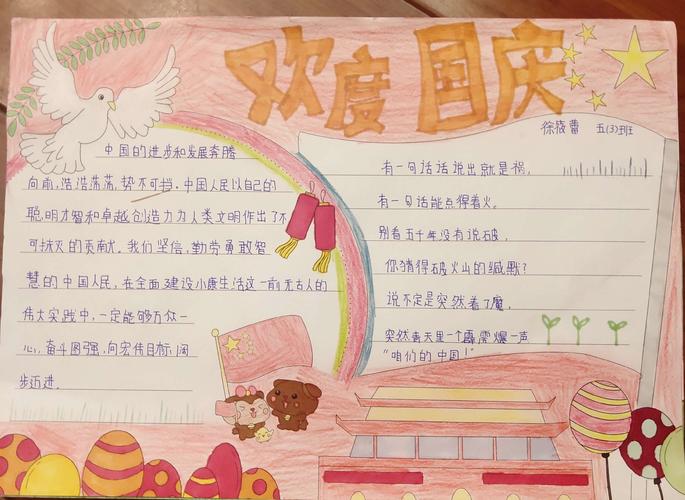 欢度国庆
五(3)班
中国的进步和发展奔腾
向前,浩浩荡荡,势不可挡。中国人民以自己的
聪明才智和卓越创造力为人类文明作出了不
可抹灭的贡献。我们坚信,勤劳勇敢智
慧的中国人民,在全面建设小康生活这一前无古人的
伟大实践中,一定能够万众一
心,奋斗图强,向宏伟目标,阔
步迈进。
有一句话说出就是祸,
有一句话能点得着火。
别看五千年没有说破,
你猜得破火山的缄默?
说不定是突然着了魔,
突然青天里一个霹雳爆一声
“咱们的中国!”